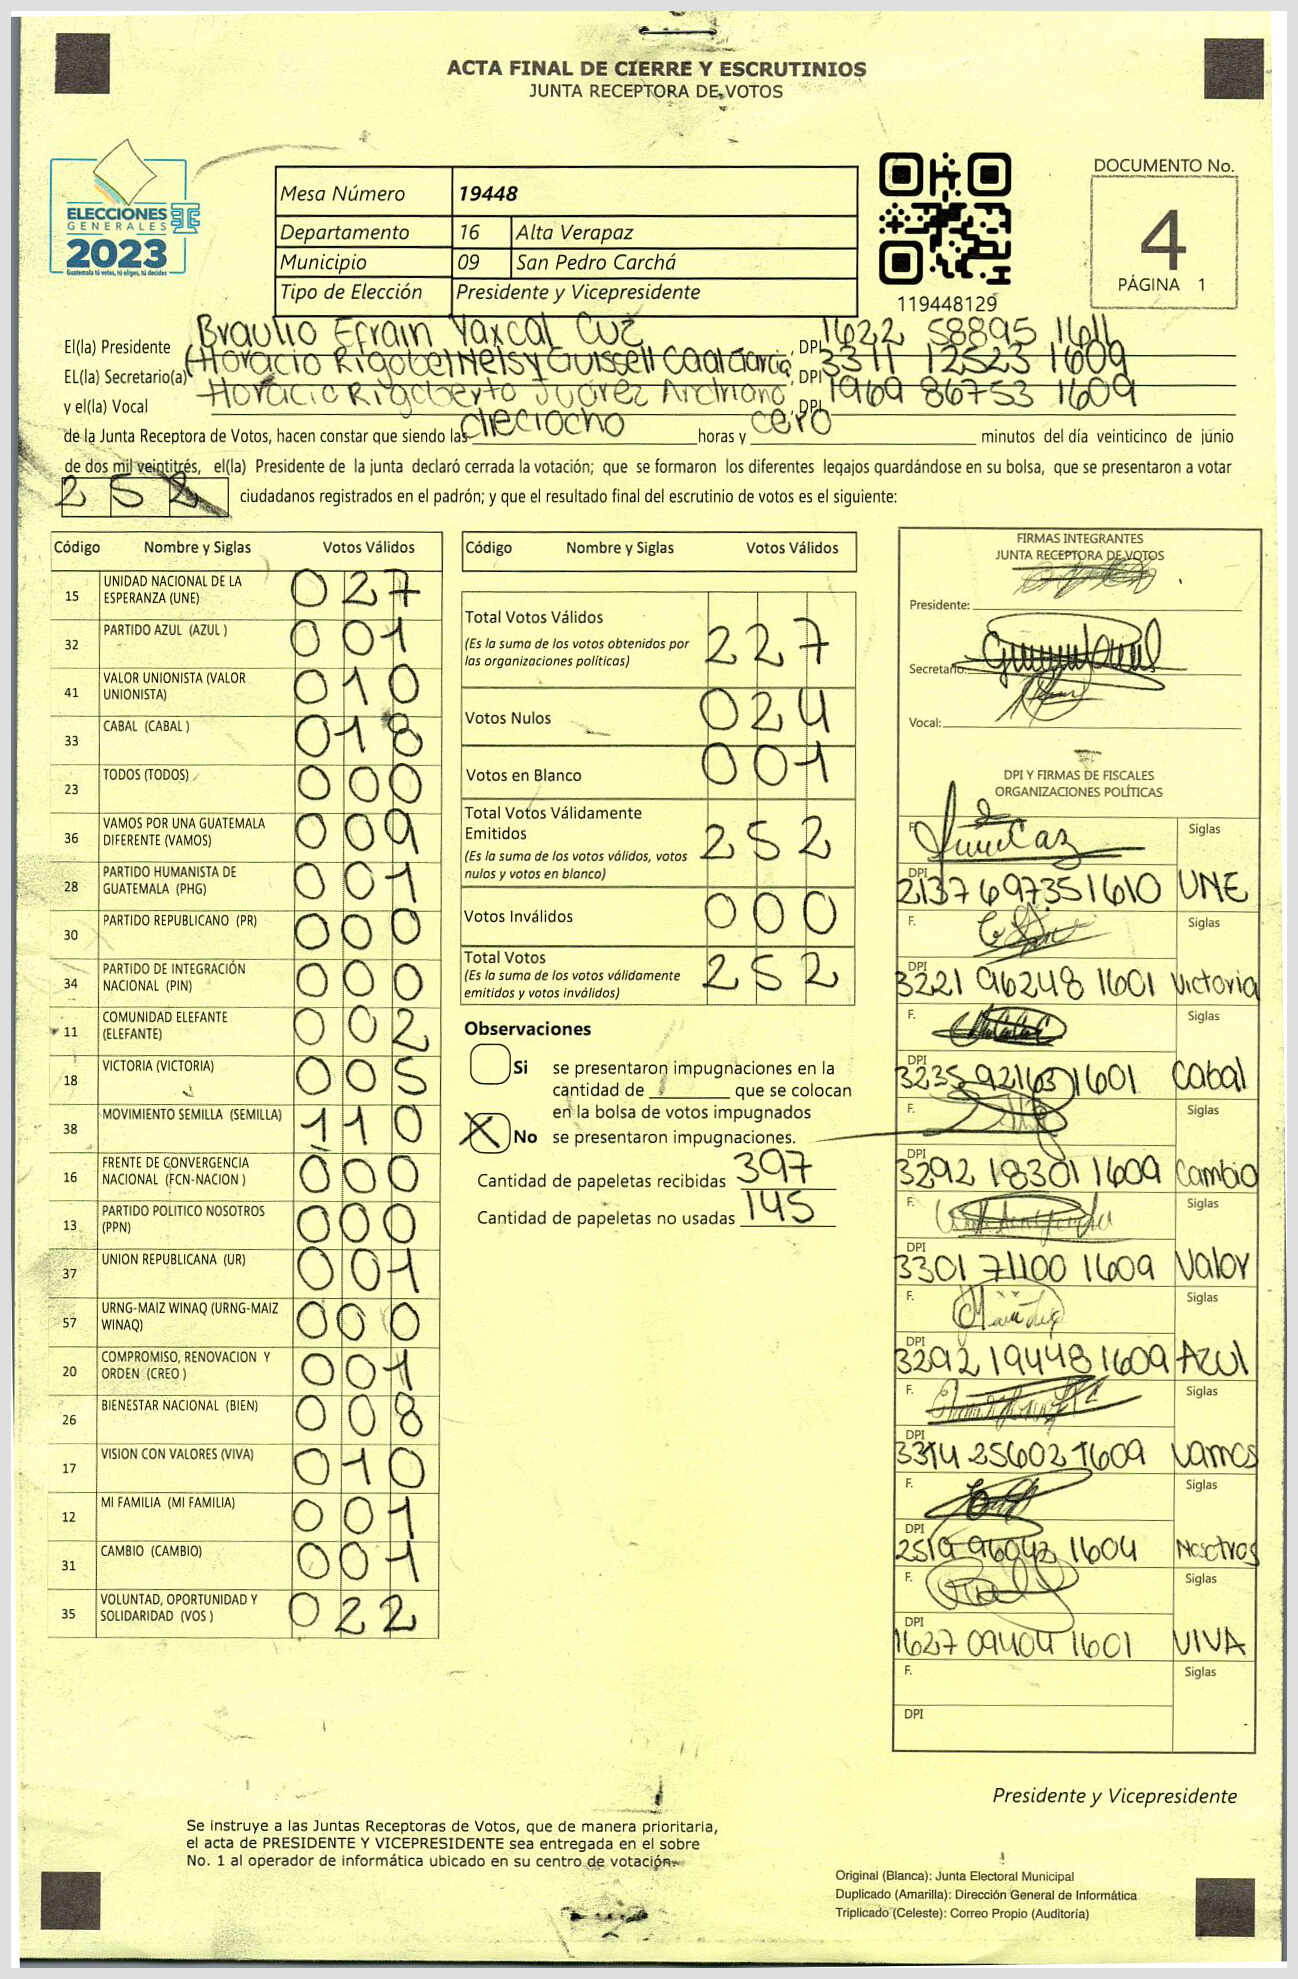 ACTA FINAL DE CIERRE Y ESCRUTINIOS
JUNTA RECEPTORA DE VOTOS
ELECCIONES
GENERALES
2023
Guatemala tú votas, tú eliges, tú decides
Mesa Número 19448
Departamento 16 Alta Verapaz
Municipio 09 San Pedro Carchá
Tipo de Elección Presidente y Vicepresidente
119448129
DOCUMENTO No.
4
PÁGINA 1
El(la) Presidente Braulio Efrain Yaxcal Cuz, DPI 1622 58895 1611
EL(la) Secretario(a) (Horacio Rigobe) Nelsy Guissell Caal Garcia, DPI 3311 12523 1609
y el(la) Vocal Horacio Rigoberto Juárez Ardriano, DPI 1969 86753 1609
de la Junta Receptora de Votos, hacen constar que siendo las dieciocho horas y cero minutos del día veinticinco de junio
de dos mil veintitrés, el(la) Presidente de la junta declaró cerrada la votación; que se formaron los diferentes legajos quardándose en su bolsa, que se presentaron a votar
252 ciudadanos registrados en el padrón; y que el resultado final del escrutinio de votos es el siguiente:
Código Nombre y Siglas Votos Válidos
15 UNIDAD NACIONAL DE LA ESPERANZA (UNE) 027
32 PARTIDO AZUL (AZUL ) 001
41 VALOR UNIONISTA (VALOR UNIONISTA) 010
33 CABAL (CABAL ) 018
23 TODOS (TODOS) 000
36 VAMOS POR UNA GUATEMALA DIFERENTE (VAMOS) 009
28 PARTIDO HUMANISTA DE GUATEMALA (PHG) 001
30 PARTIDO REPUBLICANO (PR) 000
34 PARTIDO DE INTEGRACIÓN NACIONAL (PIN) 000
11 COMUNIDAD ELEFANTE (ELEFANTE) 002
18 VICTORIA (VICTORIA) 005
38 MOVIMIENTO SEMILLA (SEMILLA) 110
16 FRENTE DE CONVERGENCIA NACIONAL (FCN-NACION ) 000
13 PARTIDO POLITICO NOSOTROS (PPN) 000
37 UNION REPUBLICANA (UR) 001
57 URNG-MAIZ WINAQ (URNG-MAIZ WINAQ) 000
20 COMPROMISO, RENOVACION Y ORDEN (CREO ) 001
26 BIENESTAR NACIONAL (BIEN) 008
17 VISION CON VALORES (VIVA) 010
12 MI FAMILIA (MI FAMILIA) 001
31 CAMBIO (CAMBIO) 001
35 VOLUNTAD, OPORTUNIDAD Y SOLIDARIDAD (VOS ) 022
Código Nombre y Siglas Votos Válidos
Total Votos Válidos 227
(Es la suma de los votos obtenidos por
las organizaciones políticas)
Votos Nulos 024
Votos en Blanco 001
Total Votos Válidamente
Emitidos 252
(Es la suma de los votos válidos, votos
nulos y votos en blanco)
Votos Inválidos 000
Total Votos 252
(Es la suma de los votos válidamente
emitidos y votos inválidos)
Observaciones
Si se presentaron impugnaciones en la
cantidad de ________ que se colocan
en la bolsa de votos impugnados
X No se presentaron impugnaciones.
Cantidad de papeletas recibidas 397
Cantidad de papeletas no usadas 145
FIRMAS INTEGRANTES
JUNTA RECEPTORA DE VOTOS
Presidente:
Secretario:
Vocal:
DPI Y FIRMAS DE FISCALES
ORGANIZACIONES POLÍTICAS
F. Siglas
DPI 2137 69735 1610 UNE
F. Siglas
DPI 3221 96248 1601 Victoria
F. Siglas
DPI 3235 92163 1601 Cabal
F. Siglas
DPI 3292 18301 1609 Cambio
F. Siglas
DPI 3301 71100 1609 Valor
F. Siglas
DPI 3292 19448 1609 AZUL
F. Siglas
DPI 3314 25602 1609 Vamos
F. Siglas
DPI 2519 96043 1604 Nosotros
F. Siglas
DPI 1627 09404 1601 VIVA
F. Siglas
DPI
Presidente y Vicepresidente
Se instruye a las Juntas Receptoras de Votos, que de manera prioritaria,
el acta de PRESIDENTE Y VICEPRESIDENTE sea entregada en el sobre
No. 1 al operador de informática ubicado en su centro de votación.
Original (Blanca): Junta Electoral Municipal
Duplicado (Amarilla): Dirección General de Informática
Triplicado (Celeste): Correo Propio (Auditoría)